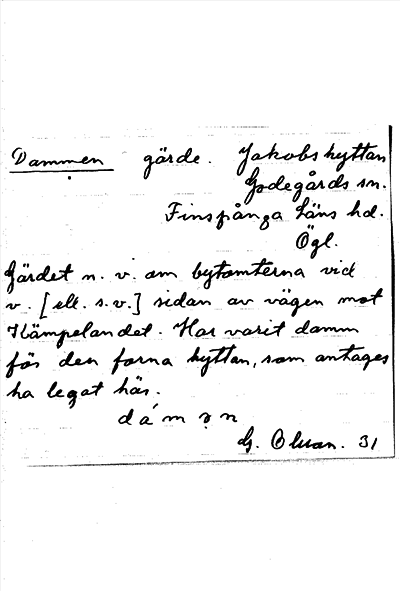 Dammen gärde. Jakobshyttan
Godegårds sn.
Finspånga Läns hd.
Ögl.
Gärdet n. v. om bytomterna vid
v. [ell. s.v.] sidan av vägen mot
Kämpelandet. Har varit damm
för den forna hyttan, som antages
ha legat här.
dámən
G. 31